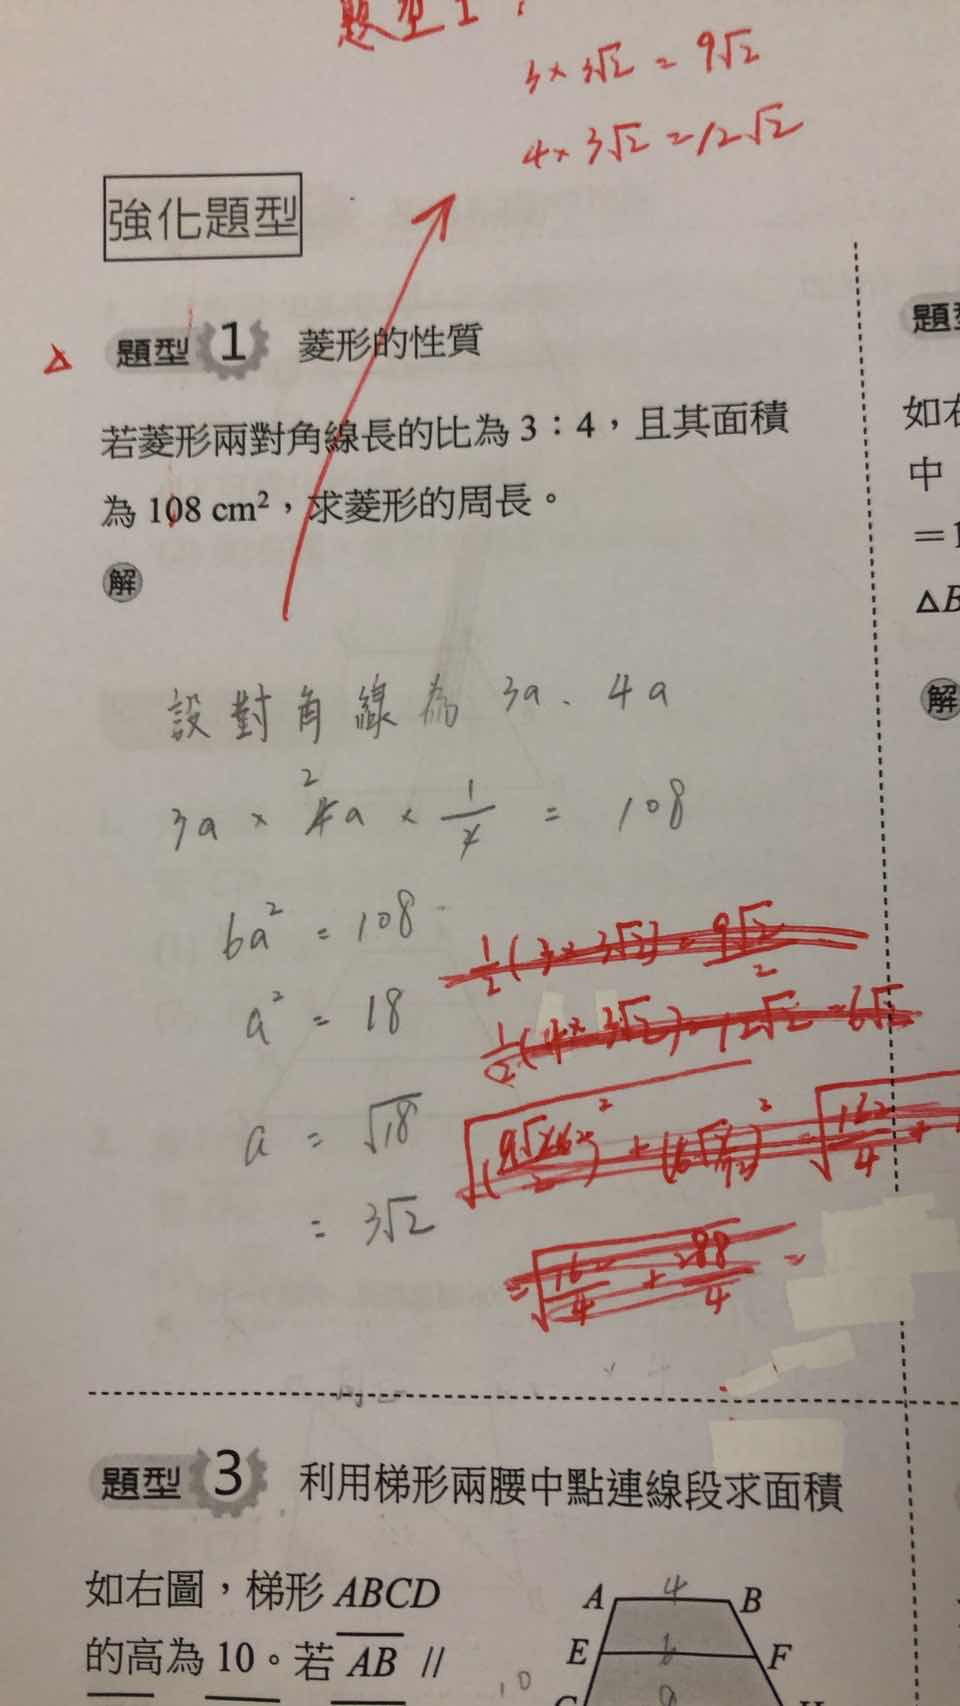 題型1:
3×3√2=9√2
4×3√2=12√2
強化題型
題型 1 菱形的性質
若菱形兩對角線長的比為 3：4，且其面積
為 108 cm²，求菱形的周長。
解
設對角線為 3a、4a
3a × 4a × 1/2 = 108
2
1
6a² = 108
a² = 18
a = √18
= 3√2
1/2(3×3√2)=9√2/2
1/2(4×3√2)=12√2=6√2
=√(162/4 + 288/4) =
題型 3 利用梯形兩腰中點連線段求面積
如右圖，梯形 ABCD
的高為 10。若 AB //
A 4 B
E F
10
題型
如右
中
=1
△B
解